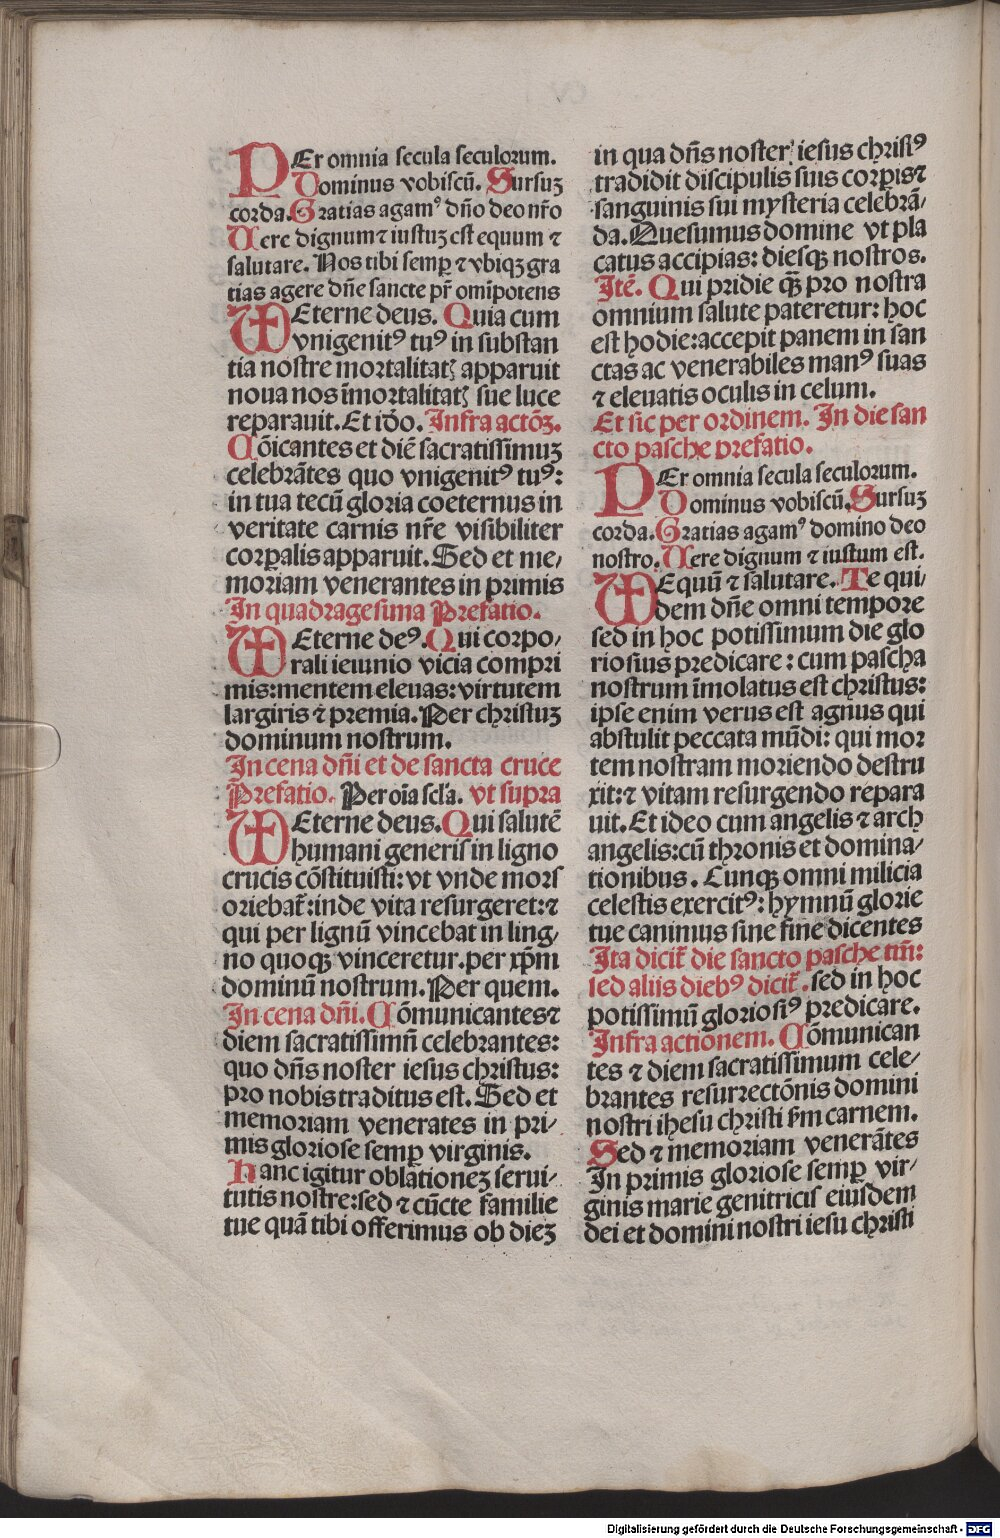 PEr omnia secula seculorum.
Dominus vobiscū. Sursuꝫ
corda. Gratias agamꝰ dño deo nr̄o
Uere dignum ⁊ iustuꝫ est equum ⁊
salutare. Nos tibi semꝑ ⁊ vbiqꝫ gra
tias agere dñe sancte pr̄ om̄ipotens
VEterne deus. Quia cum
vnigenitꝰ tuꝰ in substan
tia nostre mortalitatꝭ apparuit
noua nos īmortalitatꝭ sue luce
reparauit. Et iđo. Infra actōꝫ.
Cōicantes et diē sacratissimuꝫ
celebrātes quo vnigenitꝰ tuꝰ:
in tua tecū gloria coeternus in
veritate carnis nr̄e visibiliter
corꝑalis apparuit. Sed et me⸗
moriam venerantes in primis
In quadragesima Prefatio.
VEterne deꝰ. Qui corpo⸗
rali ieiunio vicia compri
mis: mentem eleuas: virtutem
largiris ⁊ premia. Per christuꝫ
dominum nostrum.
In cena dñi et de sancta cruce
Prefatio. Per oīa scl̄a. vt supra
VEterne deus. Qui salutē
humani generis in ligno
crucis cōstituisti: vt vnde mors
oriebat̄: inde vita resurgeret: ⁊
qui per lignū vincebat in ling⸗
no quoqꝫ vinceretur. per xp̄m
dominū nostrum. Per quem.
In cena dñi. Cōmunicantes ⁊
diem sacratissimū celebrantes:
quo dñs noster iesus christus:
pro nobis traditus est. Sed et
memoriam venerates in pri⸗
mis gloriose semꝑ virginis.
Hanc igitur oblationeꝫ serui⸗
tutis nostre: sed ⁊ cūcte familie
tue quā tibi offerimus ob dieꝫ
in qua dñs noster iesus christꝰ
tradidit discipulis suis corꝑis ⁊
sanguinis sui mysteria celebrā⸗
da. Quesumus domine vt pla
catus accipias: diesqꝫ nostros.
Itē. Qui pridie qꝫ̄ pro nostra
omnium salute pateretur: hoc
est hodie: accepit panem in san
ctas ac venerabiles manꝰ suas
⁊ eleuatis oculis in celum.
Et sic per ordinem. In die san
cto pasche prefatio.
PEr omnia secula seculorum.
Dominus vobiscū. Sursuꝫ
corda. Gratias agamꝰ domino deo
nostro. Uere dignum ⁊ iustum est.
VEquū ⁊ salutare. Te qui⸗
dem dñe omni tempore
sed in hoc potissimum die glo
riosius predicare: cum pascha
nostrum īmolatus est christus:
ipse enim verus est agnus qui
abstulit peccata mūdi: qui mor
tem nostram moriendo destru
xit: ⁊ vitam resurgendo repara
uit. Et ideo cum angelis ⁊ arch
angelis: cū thronis et domina⸗
tionibus. Cunqꝫ omni milicia
celestis exercitꝰ: hymnū glorie
tue canimus sine fine dicentes
Ita dicit̄ die sancto pasche tm̄:
sed alijs diebꝰ dicit̄. sed in hoc
potissimū gloriosiꝰ predicare.
Infra actionem. Cōmunican
tes ⁊ diem sacratissimum cele⸗
brantes resurrectōnis domini
nostri ihesu christi ẜm carnem.
Sed ⁊ memoriam venerātes
In primis gloriose semꝑ vir⸗
ginis marie genitricis eiusdem
dei et domini nostri iesu christi
Digitalisierung gefördert durch die Deutsche Forschungsgemeinschaft - DFG